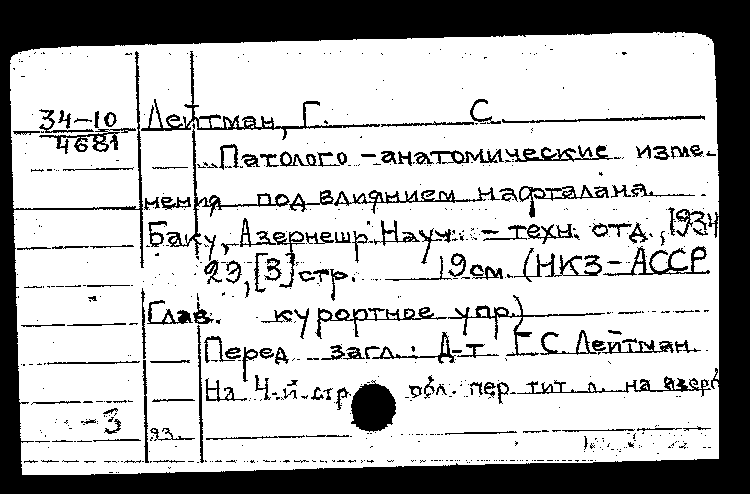 34-10 Лейтман, Г. С.
4681
Патолого-анатомические изме-
нения под влиянием нафталана.
Баку, Азернешр. Науч.-техн. отд., 1934
29, [3] стр. 19 см. (НКЗ-АССР
Глав. курортное упр.)
Перед загл.: Д-т Г.С. Лейтман
На 4-й стр. обл. пер. тит. л. на азерб
-3